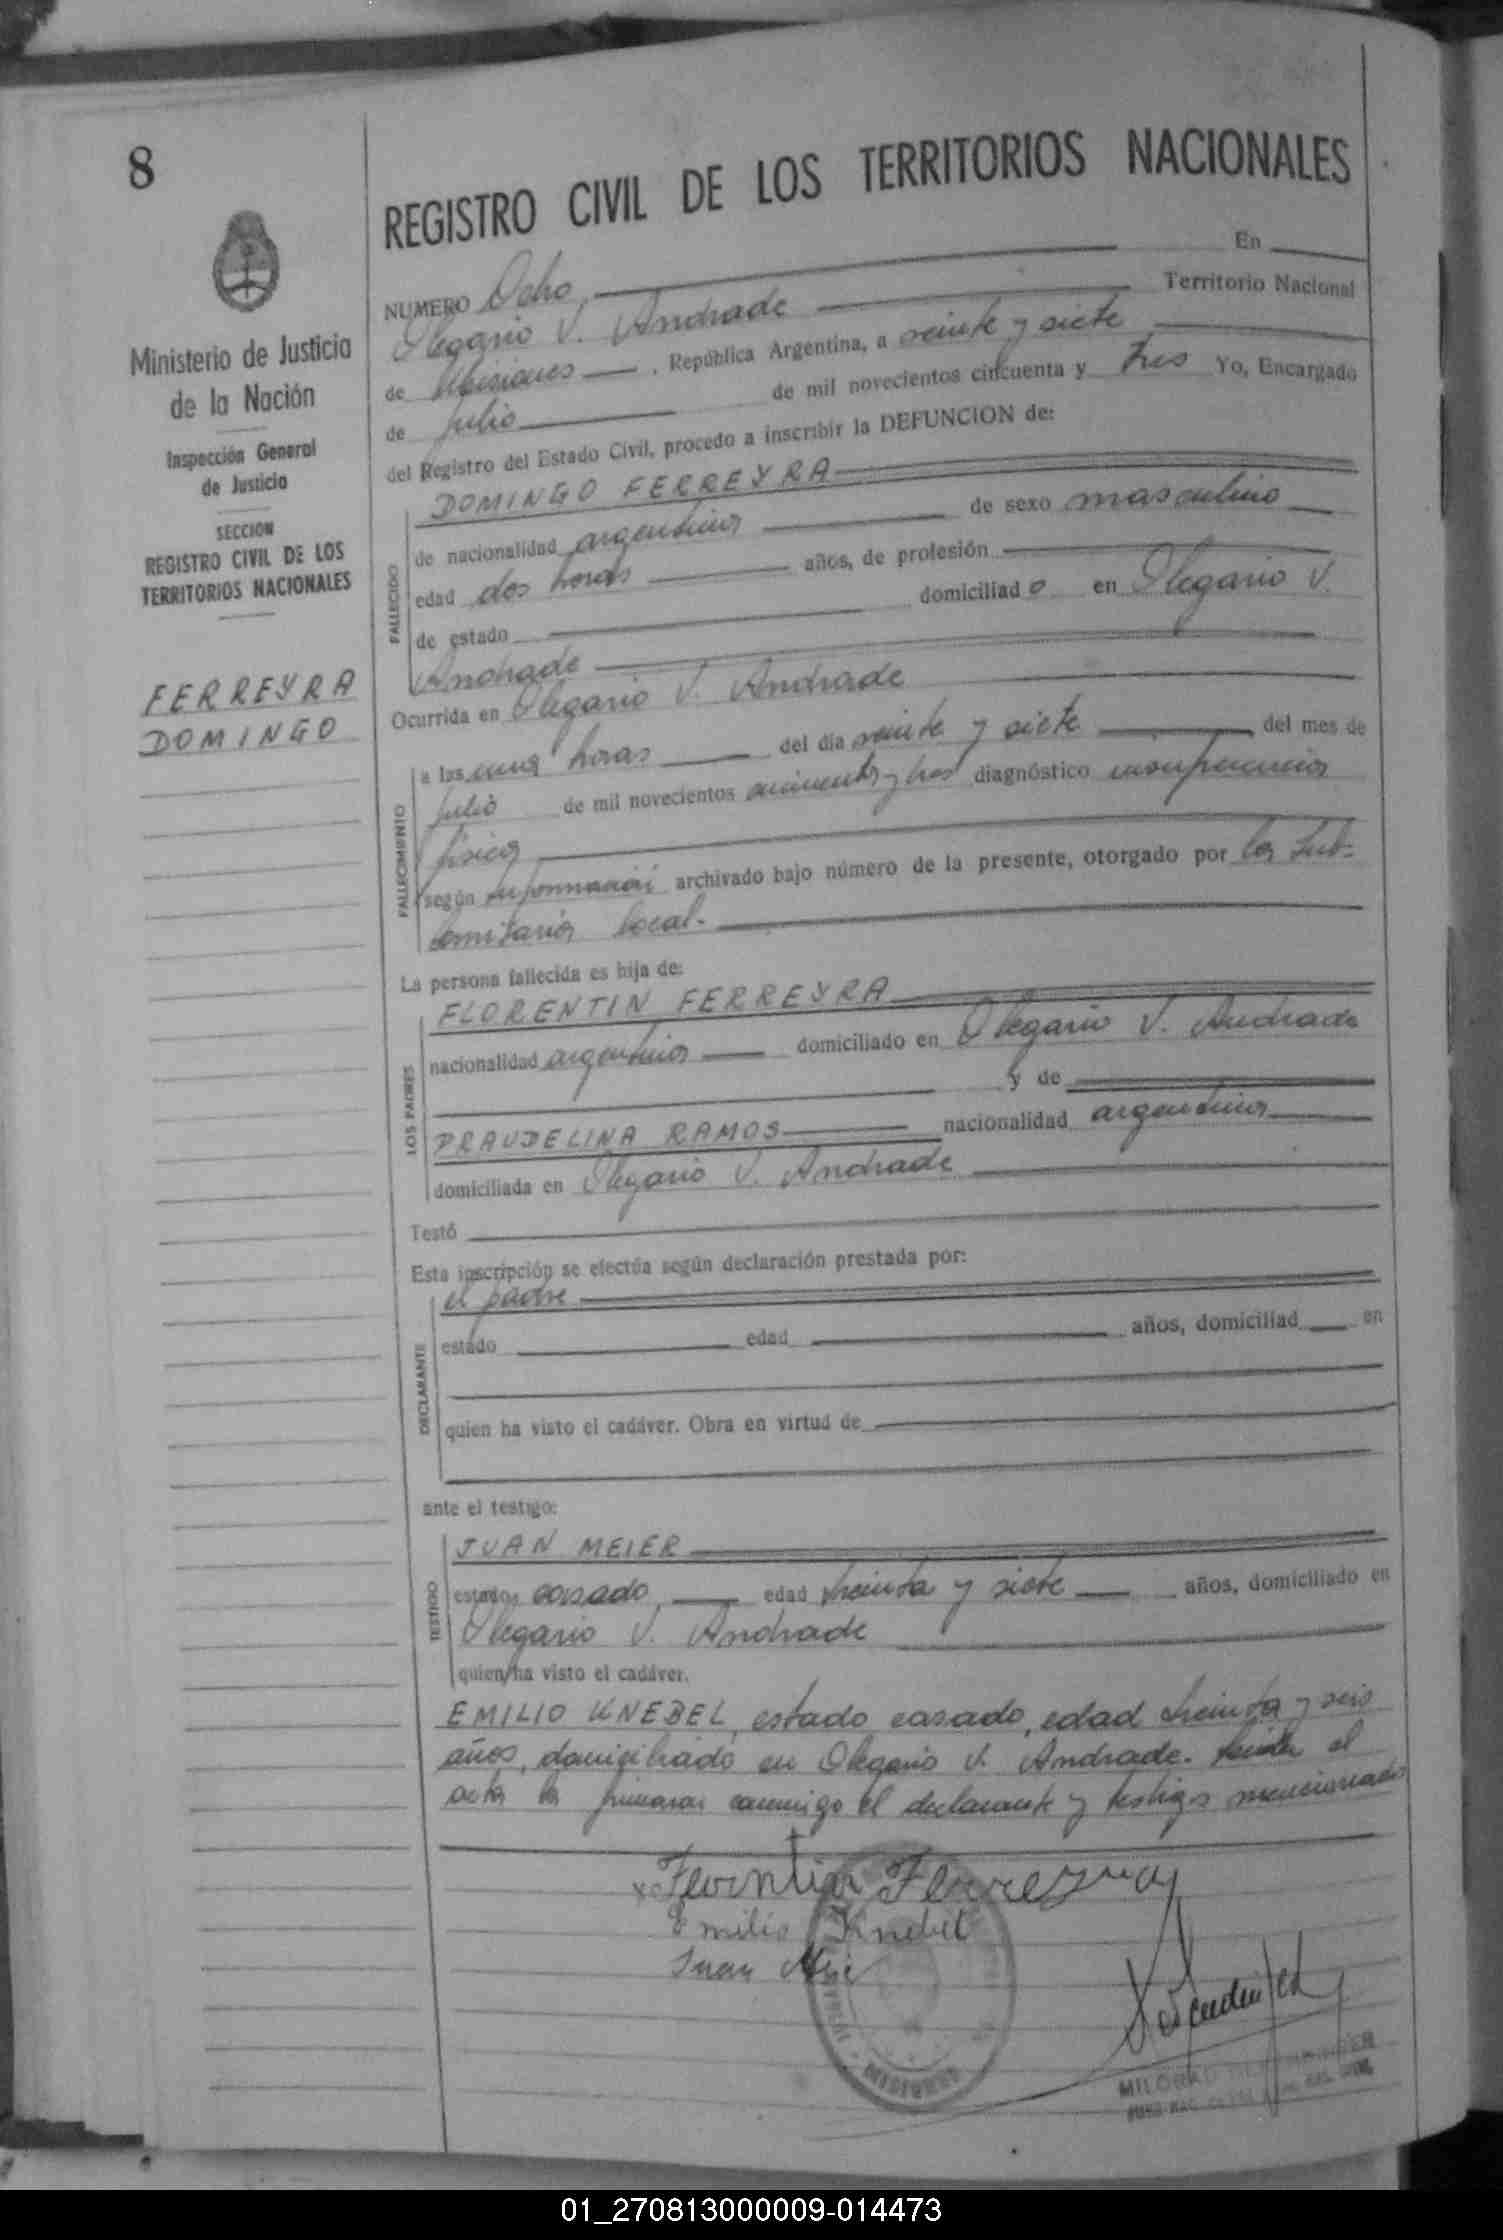 8
Ministerio de Justicia
de la Nación
Inspección General
de Justicia
SECCION
REGISTRO CIVIL DE LOS
TERRITORIOS NACIONALES
FERREYRA
DOMINGO
REGISTRO CIVIL DE LOS TERRITORIOS NACIONALES
NUMERO Ocho En
Olegario V. Andrade Territorio Nacional
de Misiones, República Argentina, a veinte y siete
de julio de mil novecientos cincuenta y tres Yo, Encargado
del Registro del Estado Civil, procedo a inscribir la DEFUNCION de:
FALLECIDO
DOMINGO FERREYRA
de nacionalidad argentina de sexo masculino
edad dos horas años, de profesión
de estado domiciliado en Olegario V.
Andrade
Ocurrida en Olegario V. Andrade
FALLECIMIENTO
a las una horas del día veinte y siete del mes de
julio de mil novecientos cincuenta y tres diagnóstico
física
según información archivado bajo número de la presente, otorgado por la Sub-
comisaria local.
La persona fallecida es hija de:
LOS PADRES
FLORENTIN FERREYRA
nacionalidad argentina domiciliado en Olegario V. Andrade
y de
PRAUDELINA RAMOS nacionalidad argentina
domiciliada en Olegario V. Andrade
Testó
Esta inscripción se efectúa según declaración prestada por:
DECLARANTE
el padre
estado edad años, domiciliad en
quien ha visto el cadáver. Obra en virtud de
ante el testigo:
TESTIGO
JUAN MEIER
estado casado, edad treinta y siete años, domiciliado en
Olegario V. Andrade
quien ha visto el cadáver.
EMILIO KNEBEL, estado casado, edad treinta y seis
años, domiciliado en Olegario V. Andrade. el
acta la firmaron conmigo el declarante y testigos mencionados
Florintin Ferreyra
Emilio Knebel
Juan
MISIONES
01_270813000009-014473